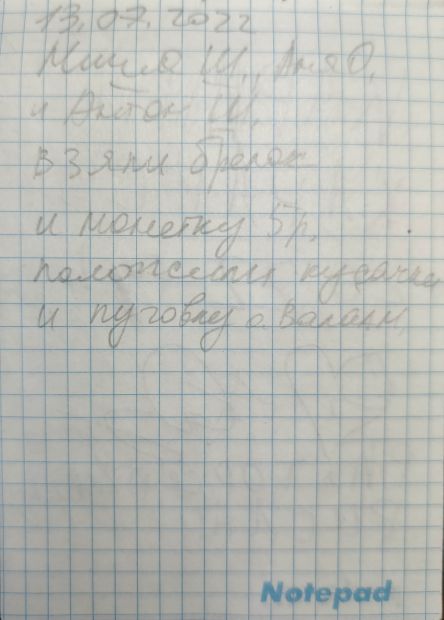 13.07.2022
Миша Ш., Аня О,
и Антон Ш.
взяли брелок
и монетку 5р,
положили
и пуговку о. Валаам,
Notepad